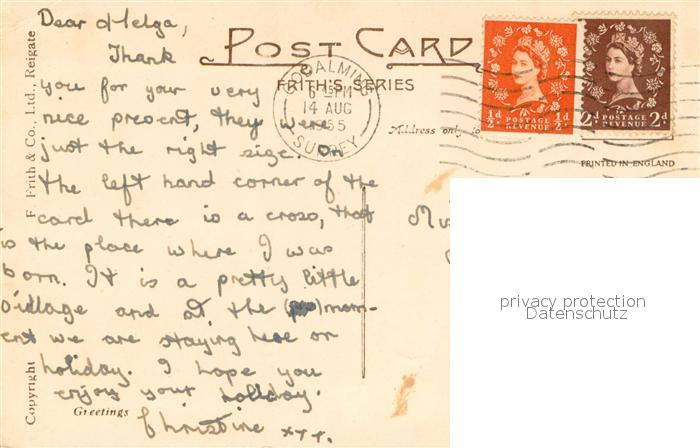 Dear Helga,
Thank
you for your very
nice present, they were
just the right size. On
the left hand corner of the
card there is a cross, that
is the place where I was
born. It is a pretty little
village and at the ( ) mom-
ent we are staying here on
holiday. I hope you
enjoy your holiday.
Christine xxx.
POST CARD
FRITH'S SERIES
GODALMING
6 PM
14 AUG
1955
SURREY
Address only to
PRINTED IN ENGLAND
½d POSTAGE ½d
REVENUE
2d POSTAGE 2d
REVENUE
F. Frith & Co., Ltd., Reigate
Copyright
Greetings
privacy protection
Datenschutz